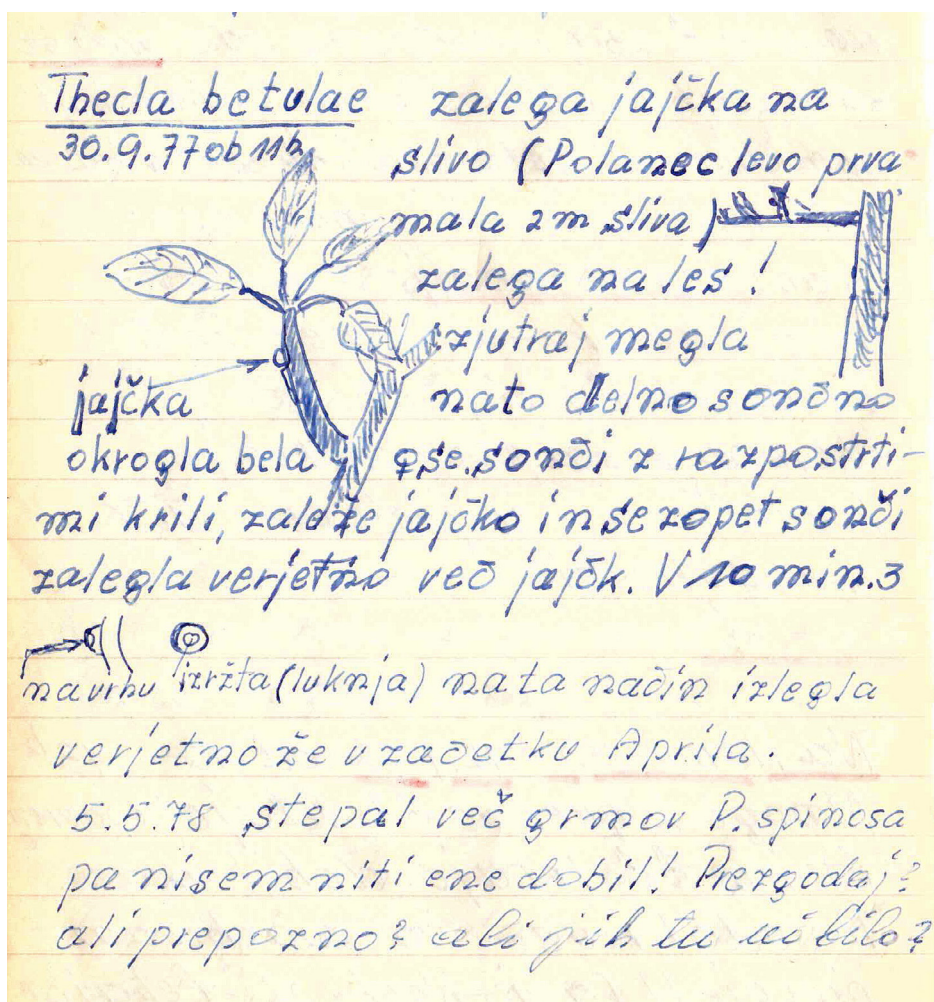 Thecla betulae zalega jajčka na
30.9.77 ob 11h slivo (Polanec levo prva
mala 2m sliva)
zalega na les!
zjutraj megla
jajčka nato delno sončno
okrogla bela ♀ se sonči z razpostrti-
mi krili, zaleže jajčko in se zopet sonči
zalegla verjetno več jajčk. V 10 min. 3
na vrhu izržta (luknja) na ta način izlegla
verjetno že v začetku Aprila.
5.5.78 stepal več grmov P. spinosa
pa nisem niti ene dobil! Prezgodaj?
ali prepozno? ali jih tu ni bilo?